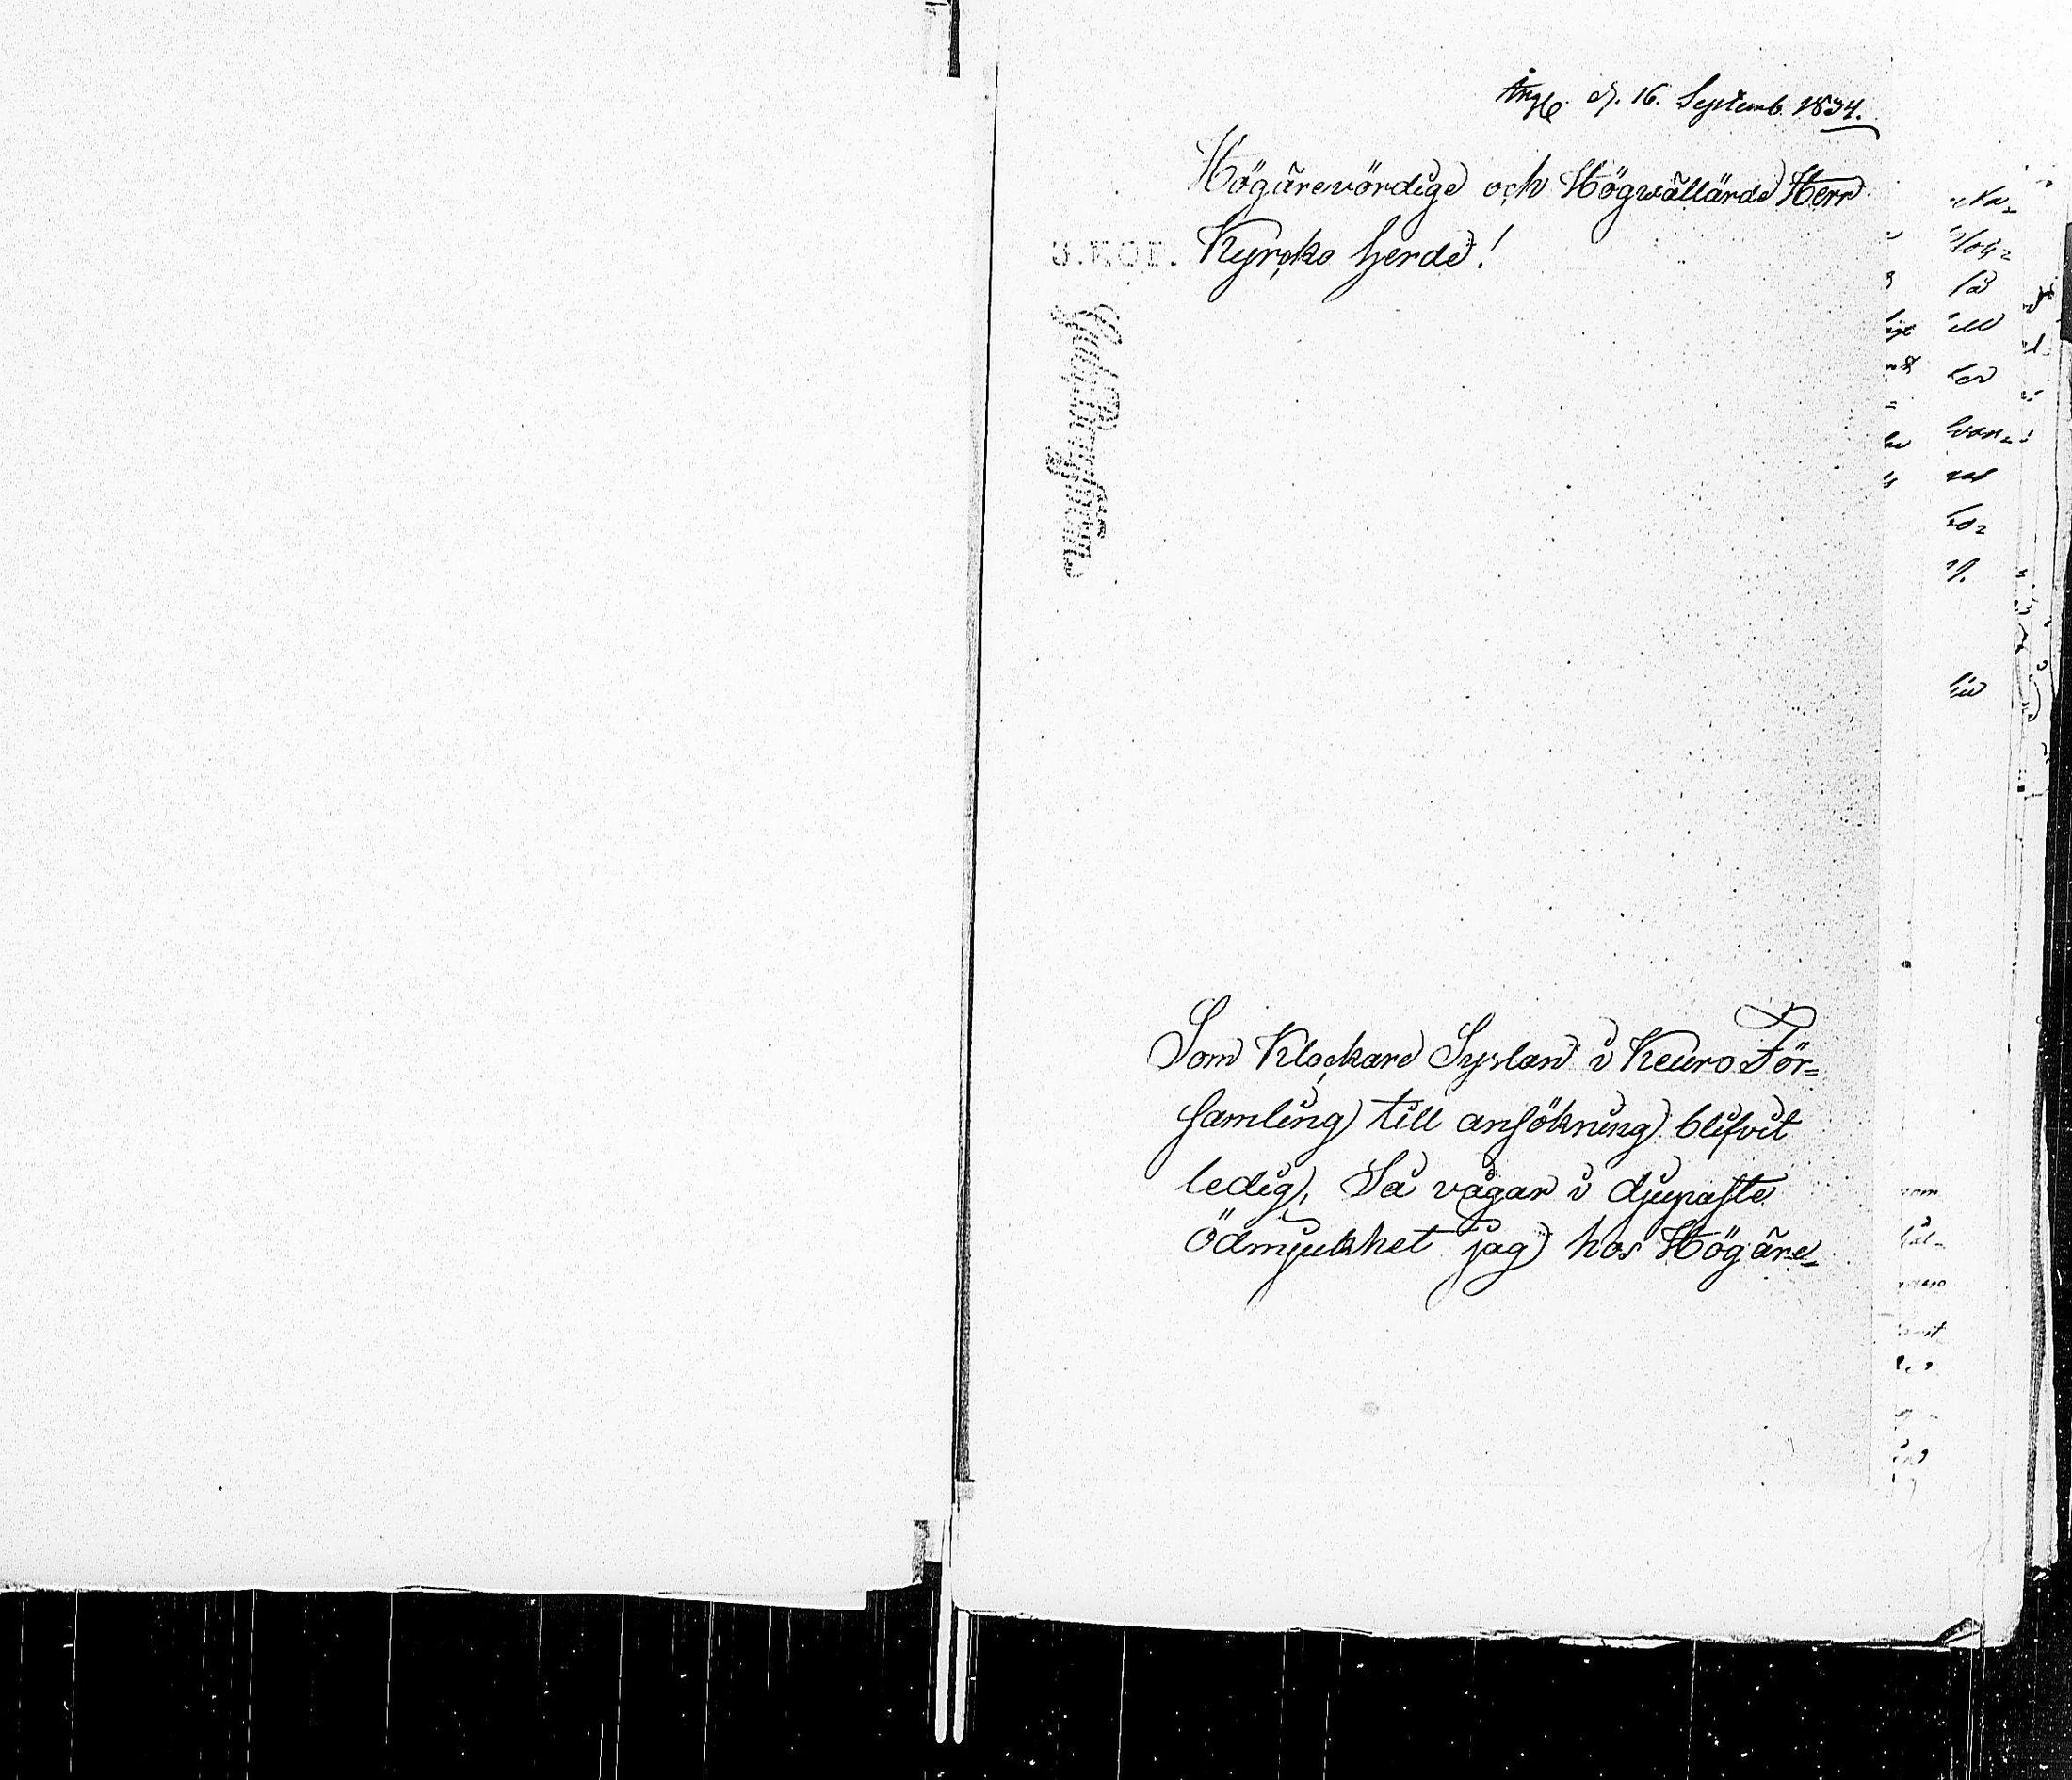 d. 16. Septemb. 1834.
Högärevördige och Högwällärde Herr
Kyrcko herde!
3. KOP.
Som Klockare Syslan i Keuro För=
samling till ansökning blifvit
ledig, Så vågar i djupaste
ödmjukhet jag hos Högäre=